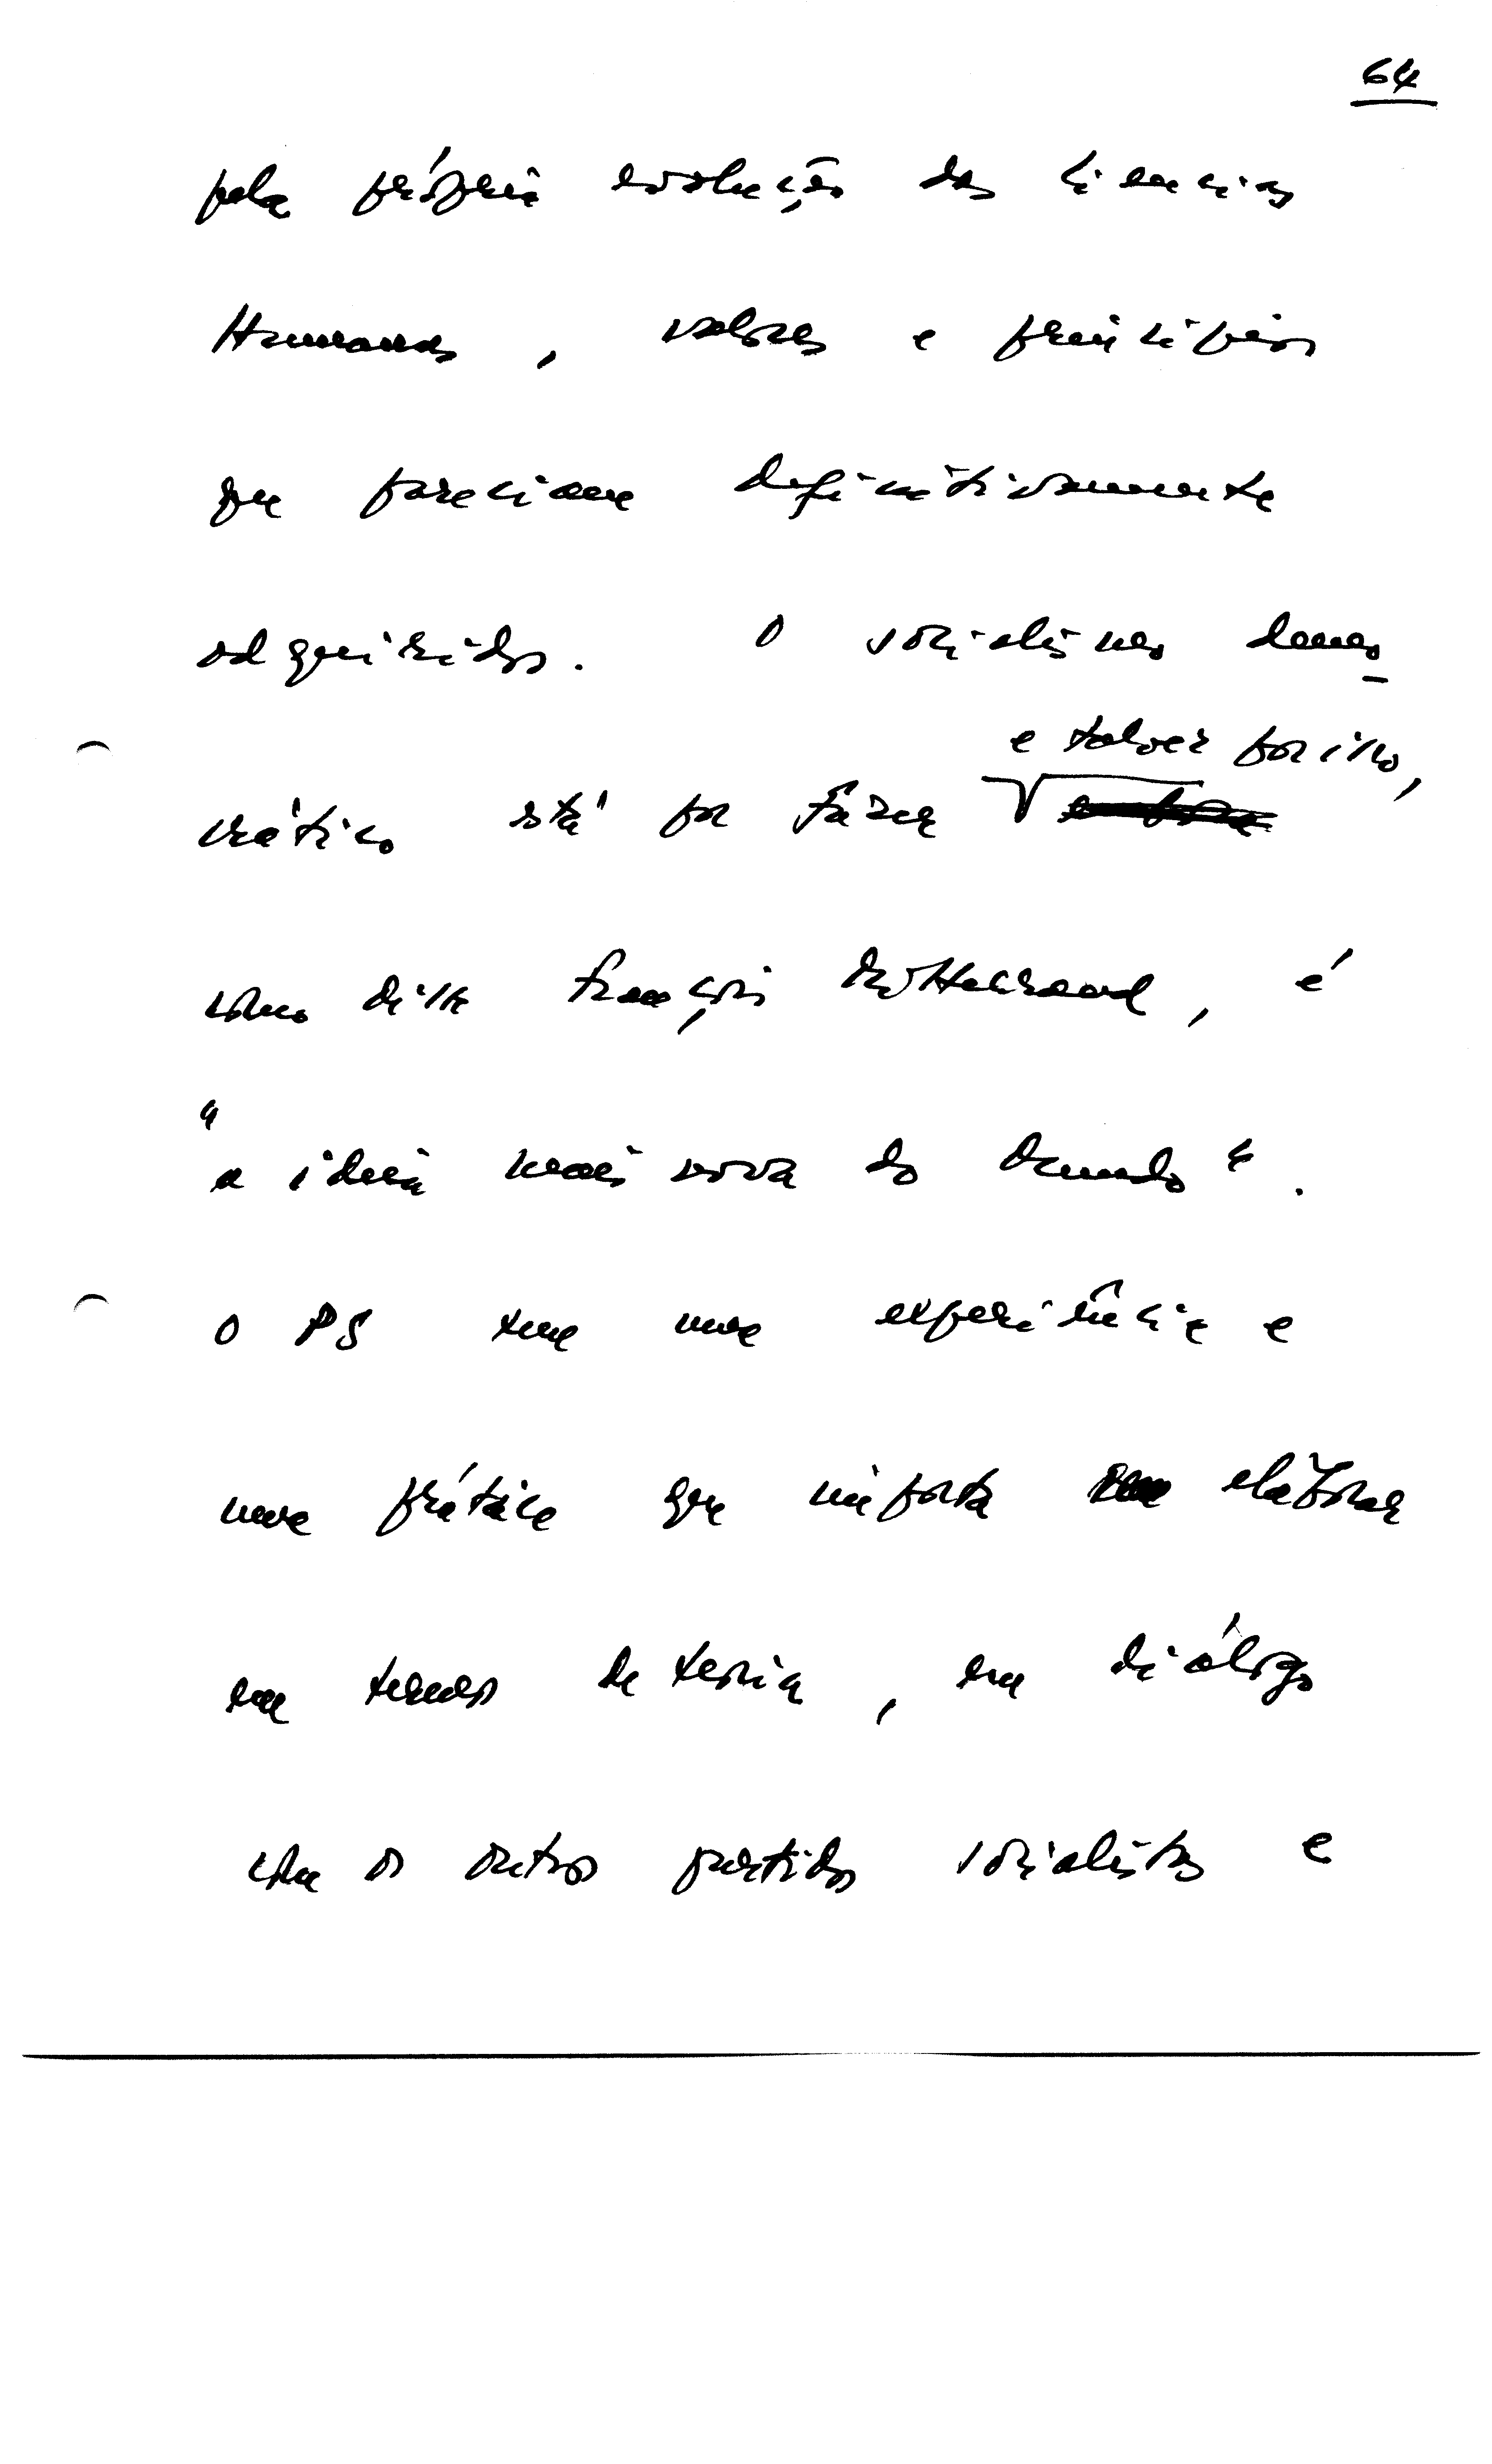 64
pela própria evolução das ciencias
Humanas, valores e princípios
que pareciam definitivamente
adquiridos. O socialismo demo
e talvez por isso,
crático está por fazer
como disse François Mitterrand, é
"a ideia mais nova do Mundo".
O PS tem uma experiência e
uma prática que importa elaborar
em termos de teoria, em diálogo
com os outros partidos socialistas e